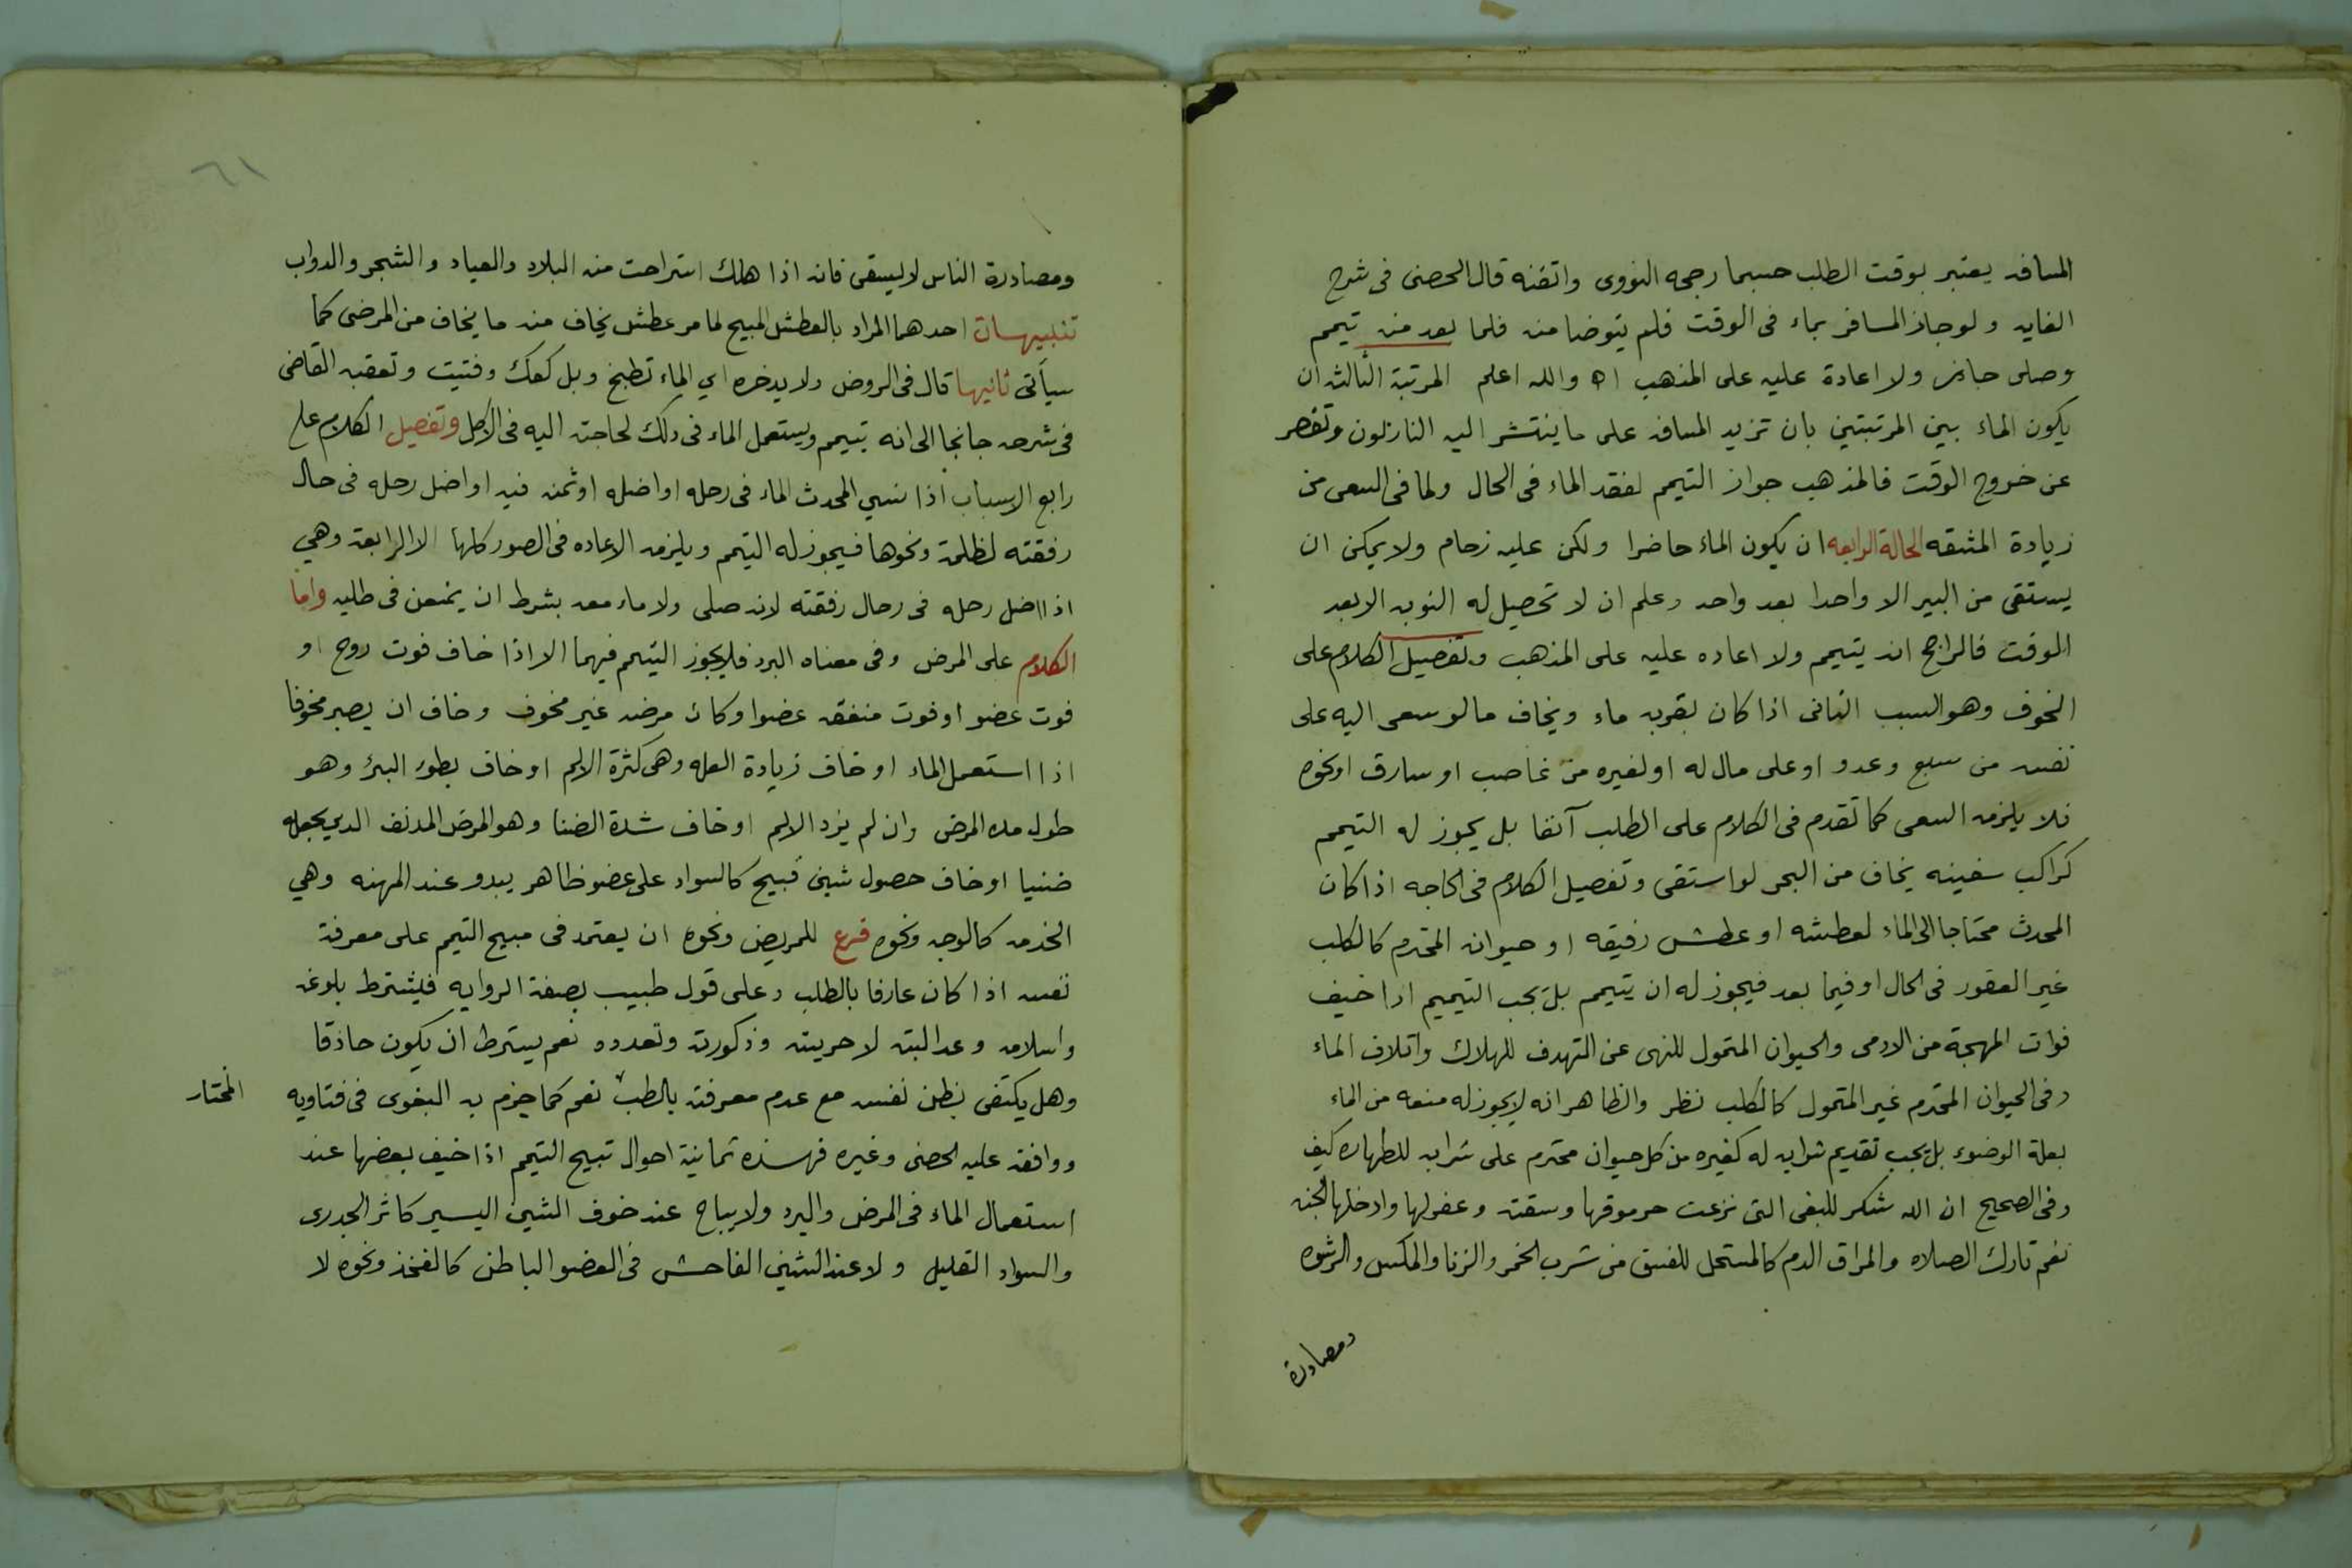 المسافه يعتبر بوقت الطلب حسبما رجحه النووى واتقنه قال الحصنى فى شرح
الغايه ولو جاز المسافر بماء فى الوقت فلم يتوضا منه فلما بعد منه تيمم
وصلى جاز ولا اعادة عليه على المذهب اه والله اعلم المرتبة الثالثه ان
يكون الماء بين المرتبتين بان تزيد المسافه على ما ينتشر اليه النازلون وتقصر
عن خروج الوقت فالمذهب جواز التيمم لفقد الماء فى الحال ولما فى السعى من
زيادة المشقه الحالة الرابعه ان يكون الماء حاضرا ولكن عليه زحام ولا يمكن ان
يستقى من البير الا واحدا بعد واحد وعلم ان لا تحصيل له النوبه الا بعد
الوقت فالراجح انه يتيمم ولا اعاده عليه على المذهب وتفصيل الكلام على
الخوف وهو السبب الثانى اذا كان بقربه ماء ويخاف مالو سعى اليه على
نفسه من سبع وعدو او على مال له او لغيره من غاصب او سارق او نحوه
فلا يلزمه السعى كما تقدم فى الكلام على الطلب آنفا بل يجوز له التيمم
كراكب سفينه يخاف من البحر لو استقى وتفصيل الكلام فى الحاجه اذا كان
المحدث محتاجا الى الماء لعطشه او عطش رفيقه او حيوان المحترم كالكلب
غير العقور فى الحال او فيما بعد فيجوز له ان يتيمم بل يجب التيميم اذا خيف
فوات المهجة من الادمى والحيوان المتمول للنهى عن التهدف للهلاك واتلاف الماء
وفى الحيوان المحترم غير المتمول كالكلب نظر والظاهر انه لا يجوز له منعه من الماء
بعلة الوضوء بل يجب تقديم شرابه له كغيره من كل حيوان محترم على شرابه للطهاره كيف
وفى الصحيح ان الله شكر للبغى التى نزعت حرموقها وسقته وغفر لها وادخلها الجنه
نعم تارك الصلاه والمراق الدم كالمستحل للفسق من شرب الخمر والزنا والمكس والرشوه
ومصادرة
٦١
ومصادرة الناس لا يسقى فانه اذا هلك استراحت منه البلاد والعباد والشجر والدواب
تنبيهات احدهما المراد بالعطش المبيح لما مر عطش يخاف منه ما يخاف من المرضى كما
سيأتى ثانيها قال فى الروض ولا يدخره اي الماء لطبخ وبل كعك وفتيت وتعقبه القاضى
فى شرحه جانحا الى انه يتيمم ويستعمل الماء فى ذلك لحاجته اليه فى الاكل وتفصيل الكلام على
رابع الاسباب اذا نسي المحدث الماء فى رحله او اضله او ثمنه فيه او اضل رحله فى حال
رفقته لظلمة ونحوها فيجوز له التيمم ويلزمه الاعاده فى الصور كلها الا الرابعة وهي
اذا اضل رحله فى رحال رفقته لانه صلى ولا ماء معه بشرط ان يمعن فى طلبه واما
الكلام على المرض وفى معناه البرد فلا يجوز التيمم فيهما الا اذا خاف فوت روح او
فوت عضو او فوت منفعه عضو او كان مرضه غير مخوف وخاف ان يصير مخوفا
اذا استعمل الماء او خاف زيادة العله وهى كثرة الالم او خاف بطوء البرؤ وهو
طول مده المرض وان لم يزد الالم او خاف شدة الضنا وهو المرض المدنف الذى يجعله
ضنيا او خاف حصول شين قبيح كالسواد على عضو ظاهر يبدو عند المهنه وهي
الخدمه كالوجه ونحوه فرع للمريض ونحوه ان يعتمد فى مبيح التيمم على معرفة
نفسه اذا كان عارفا بالطلب وعلى قول طبيب بصفة الروايه فيشترط بلوغه
واسلامه وعدالبته لا حريته وذكورته وتعدده نعم يشترط ان يكون حاذقا
وهل يكتفى بظن نفسه مع عدم معرفته بالطب نعم كما جزم به البغوى فى فتاويه
المختار
ووافقه عليه الحصنى وغيره فهذه ثمانية احوال تبيح التيمم اذا خيف بعضها عند
استعمال الماء فى المرض والبرد ولا يباح عند خوف الشين اليسير كاثر الجدرى
والسواد القليل ولا عند الشين الفاحش فى العضو الباطن كالفخذ ونحوه لا